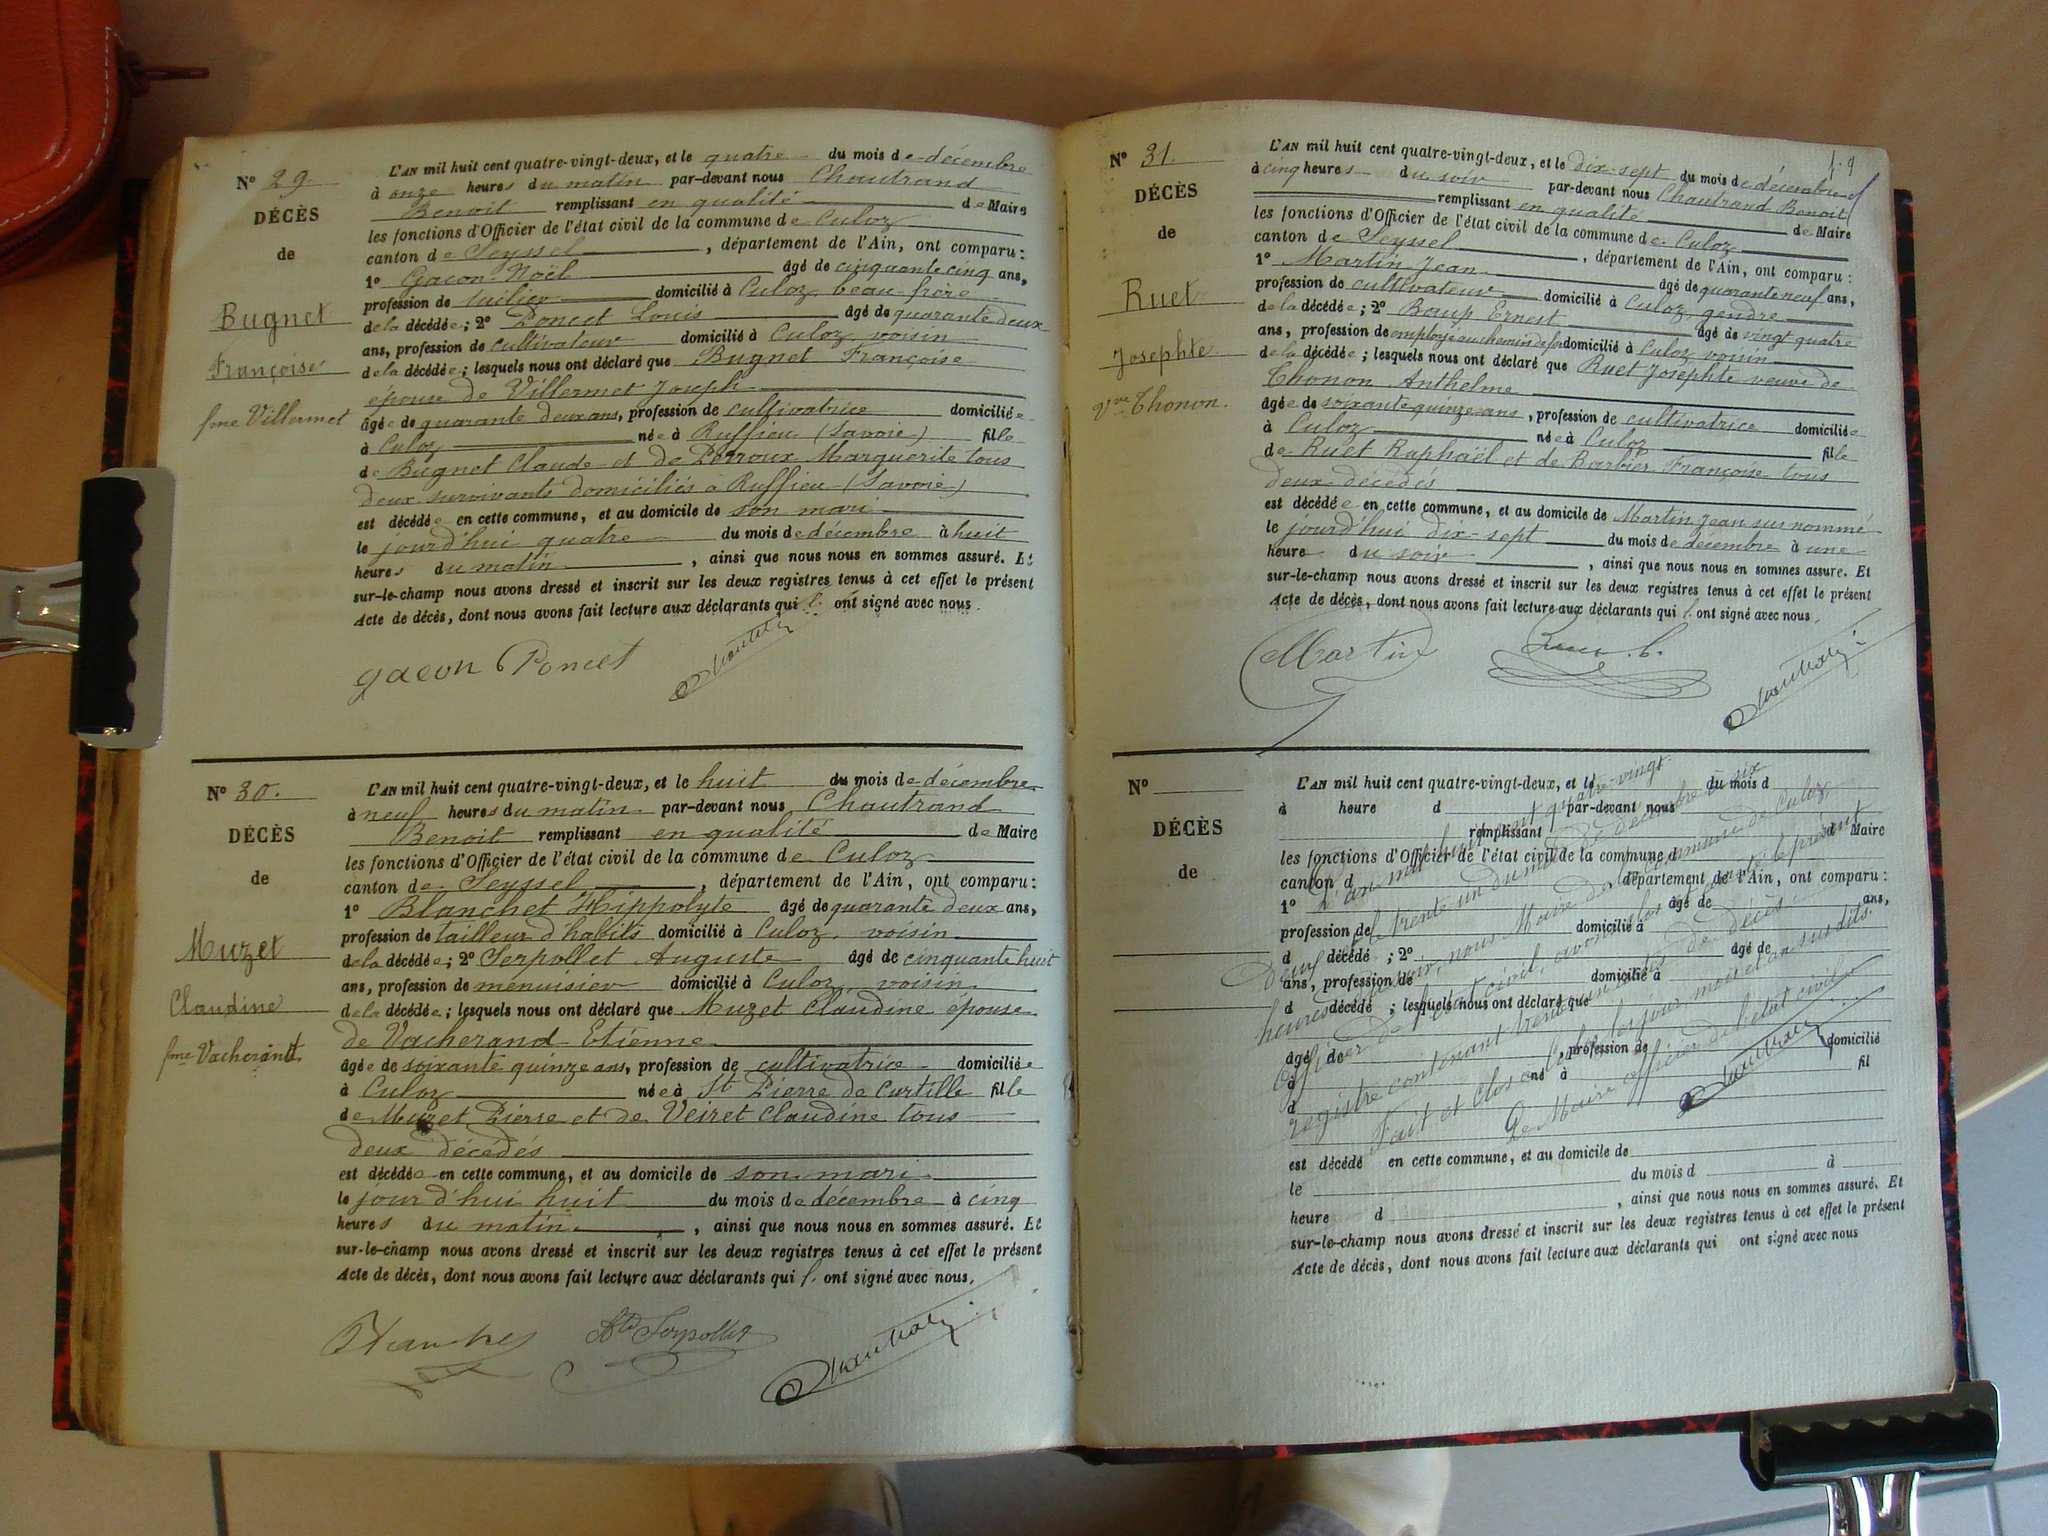 N° 29.
DÉCÈS
de
Bugnet
Françoise
fme Villermet
L'AN mil huit cent quatre-vingt-deux, et le quatre du mois de décembre
à onze heures du matin par-devant nous Chautrand
Benoit remplissant en qualité de Maire
les fonctions d'Officier de l'état civil de la commune de Culoz
canton de Seyssel, département de l'Ain, ont comparu :
1° Gacon Noël âgé de cinquante cinq ans,
profession de domicilié à Culoz beau-frère
de la décédée ; 2° Poncet Louis âgé de quarante deux
ans, profession de cultivateur domicilié à Culoz, voisin
de la décédée ; lesquels nous ont déclaré que Bugnet Françoise
épouse de Villermet Joseph
âgée de quarante deux ans, profession de cultivatrice domiciliée
à Culoz née à Ruffieu (Savoie) fille
de Bugnet Claude et de Perroux Marguerite tous
deux survivants domiciliés à Ruffieu (Savoie)
est décédée en cette commune, et au domicile de son mari
le jourd'hui quatre du mois de décembre à huit
heures du matin, ainsi que nous nous en sommes assuré. Et
sur-le-champ nous avons dressé et inscrit sur les deux registres tenus à cet effet le présent
Acte de décès, dont nous avons fait lecture aux déclarants qui l' ont signé avec nous.
gacon Poncet
N° 30.
DÉCÈS
de
Muzet
Claudine
fme Vacherand
L'AN mil huit cent quatre-vingt-deux, et le huit du mois de décembre
à neuf heures du matin par-devant nous Chautrand
Benoit remplissant en qualité de Maire
les fonctions d'Officier de l'état civil de la commune de Culoz
canton de Seyssel, département de l'Ain, ont comparu :
1° Blanchet Hippolyte âgé de quarante deux ans,
profession de tailleur d'habits domicilié à Culoz, voisin
de la décédée ; 2° Serpollet Auguste âgé de cinquante huit
ans, profession de menuisier domicilié à Culoz, voisin
de la décédée ; lesquels nous ont déclaré que Muzet Claudine épouse
de Vacherand Etienne
âgée de soixante quinze ans, profession de cultivatrice domiciliée
à Culoz née à St Pierre de Curtille fille
de Muzet Pierre et de Veiret Claudine tous
deux décédés
est décédée en cette commune, et au domicile de son mari
le jourd'hui huit du mois de décembre à cinq
heures du matin, ainsi que nous nous en sommes assuré. Et
sur-le-champ nous avons dressé et inscrit sur les deux registres tenus à cet effet le présent
Acte de décès, dont nous avons fait lecture aux déclarants qui l' ont signé avec nous.
Serpollet
N° 31.
DÉCÈS
de
Ruet
Josephte
Vve Thonon.
L'AN mil huit cent quatre-vingt-deux, et le dix-sept du mois de décembre
à cinq heures du soir par-devant nous Chautrand Benoit
remplissant en qualité de Maire
les fonctions d'Officier de l'état civil de la commune de Culoz
canton de Seyssel, département de l'Ain, ont comparu :
1° Martin Jean âgé de quarante neuf ans,
profession de cultivateur domicilié à Culoz, gendre
de la décédée ; 2° Baup Ernest âgé de vingt quatre
ans, profession de employé au chemin de fer domicilié à Culoz voisin
de la décédée ; lesquels nous ont déclaré que Ruet Josephte veuve de
Thonon Anthelme
âgée de soixante quinze ans, profession de cultivatrice domiciliée
à Culoz née à Culoz fille
de Ruet Raphaël et de Barbier Françoise tous
deux décédés
est décédée en cette commune, et au domicile de Martin Jean sus nommé
le jourd'hui dix-sept du mois de décembre à une
heure du soir, ainsi que nous nous en sommes assuré. Et
sur-le-champ nous avons dressé et inscrit sur les deux registres tenus à cet effet le présent
Acte de décès, dont nous avons fait lecture aux déclarants qui l' ont signé avec nous.
Martin
N°
DÉCÈS
de
L'AN mil huit cent quatre-vingt-deux, et le du mois d
à heure d par-devant nous
remplissant d Maire
les fonctions d'Officier de l'état civil de la commune d
canton d, département de l'Ain, ont comparu :
1° âgé de ans,
profession de domicilié à
d décédé ; 2° âgé de
ans, profession de domicilié à
d décédé ; lesquels nous ont déclaré que
âgé de, profession de domicilié
à né à fil
d
est décédé en cette commune, et au domicile de
le du mois d à
heure d, ainsi que nous nous en sommes assuré. Et
sur-le-champ nous avons dressé et inscrit sur les deux registres tenus à cet effet le présent
Acte de décès, dont nous avons fait lecture aux déclarants qui ont signé avec nous
L'an mil huit cent quatre-vingt
deux et le trente un du mois de décembre à six
heures du soir, nous Maire de la commune de Culoz
officier de l'état civil, avons clos et arrêté le présent
registre contenant trente un actes de décès.
Fait et clos à Culoz les jour mois et an susdits.
Le Maire officier de l'état civil